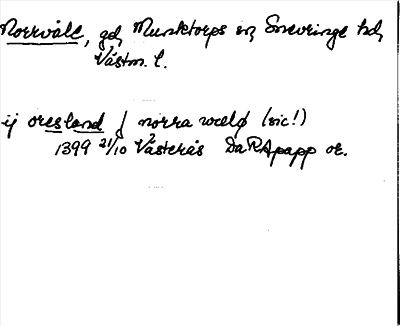 Norrvåle, gd, Munktorps sn, Snevringe hd,
Västm. l.
ij öresland j norra wale (sic!)
1399 21/10 Västerås DaRApapp or.